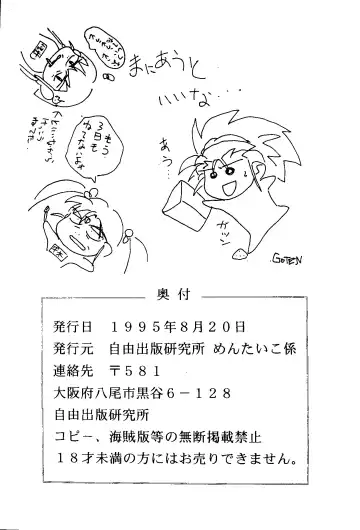 まにあうと
いいな…
もう
3日も
ねてないよ
あぅ…
ガツン
GOTEN
奥付
発行日　1995年8月20日
発行元　自由出版研究所 めんたいこ係
連絡先　〒581
大阪府八尾市黒谷6－128
自由出版研究所
コピー、海賊版等の無断掲載禁止
18才未満の方にはお売りできません。